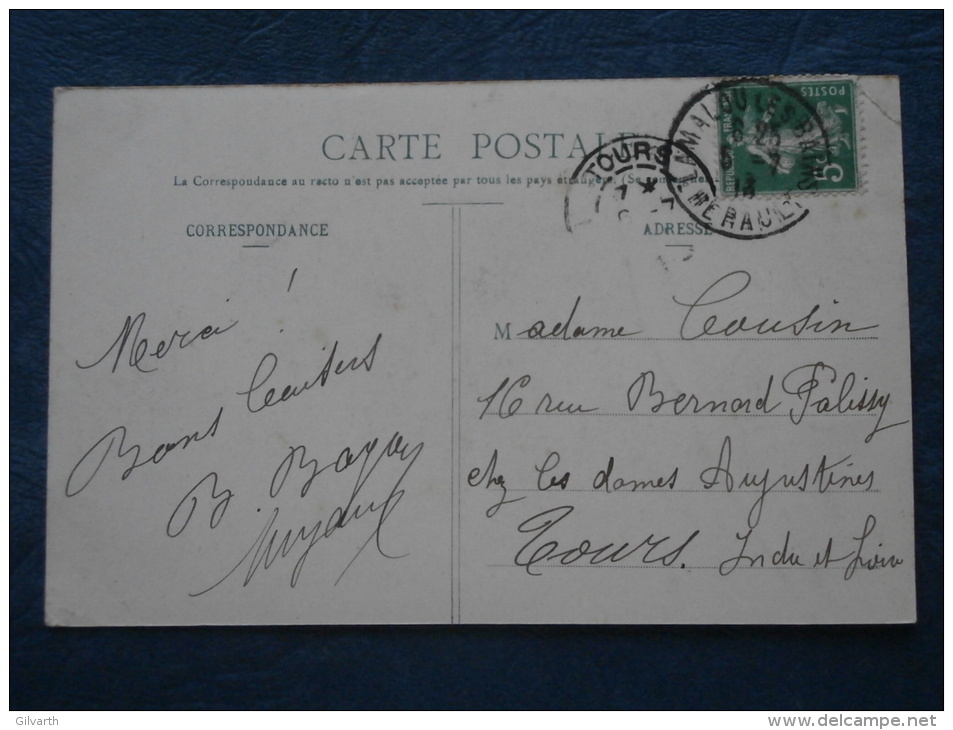 CARTE POSTALE
La Correspondance au recto n'est pas acceptée par tous les pays étrangers (Se renseigner
TOURS
LAMALOU LES BAINS
HERAULT
POSTES
5
CORRESPONDANCE
ADRESSE
Merci !
Bons
B.
Madame Cousin
rue Bernard Palissy
chez les dames Augustines
Tours. Indre et Loire
Gilvarth
www.delcampe.net